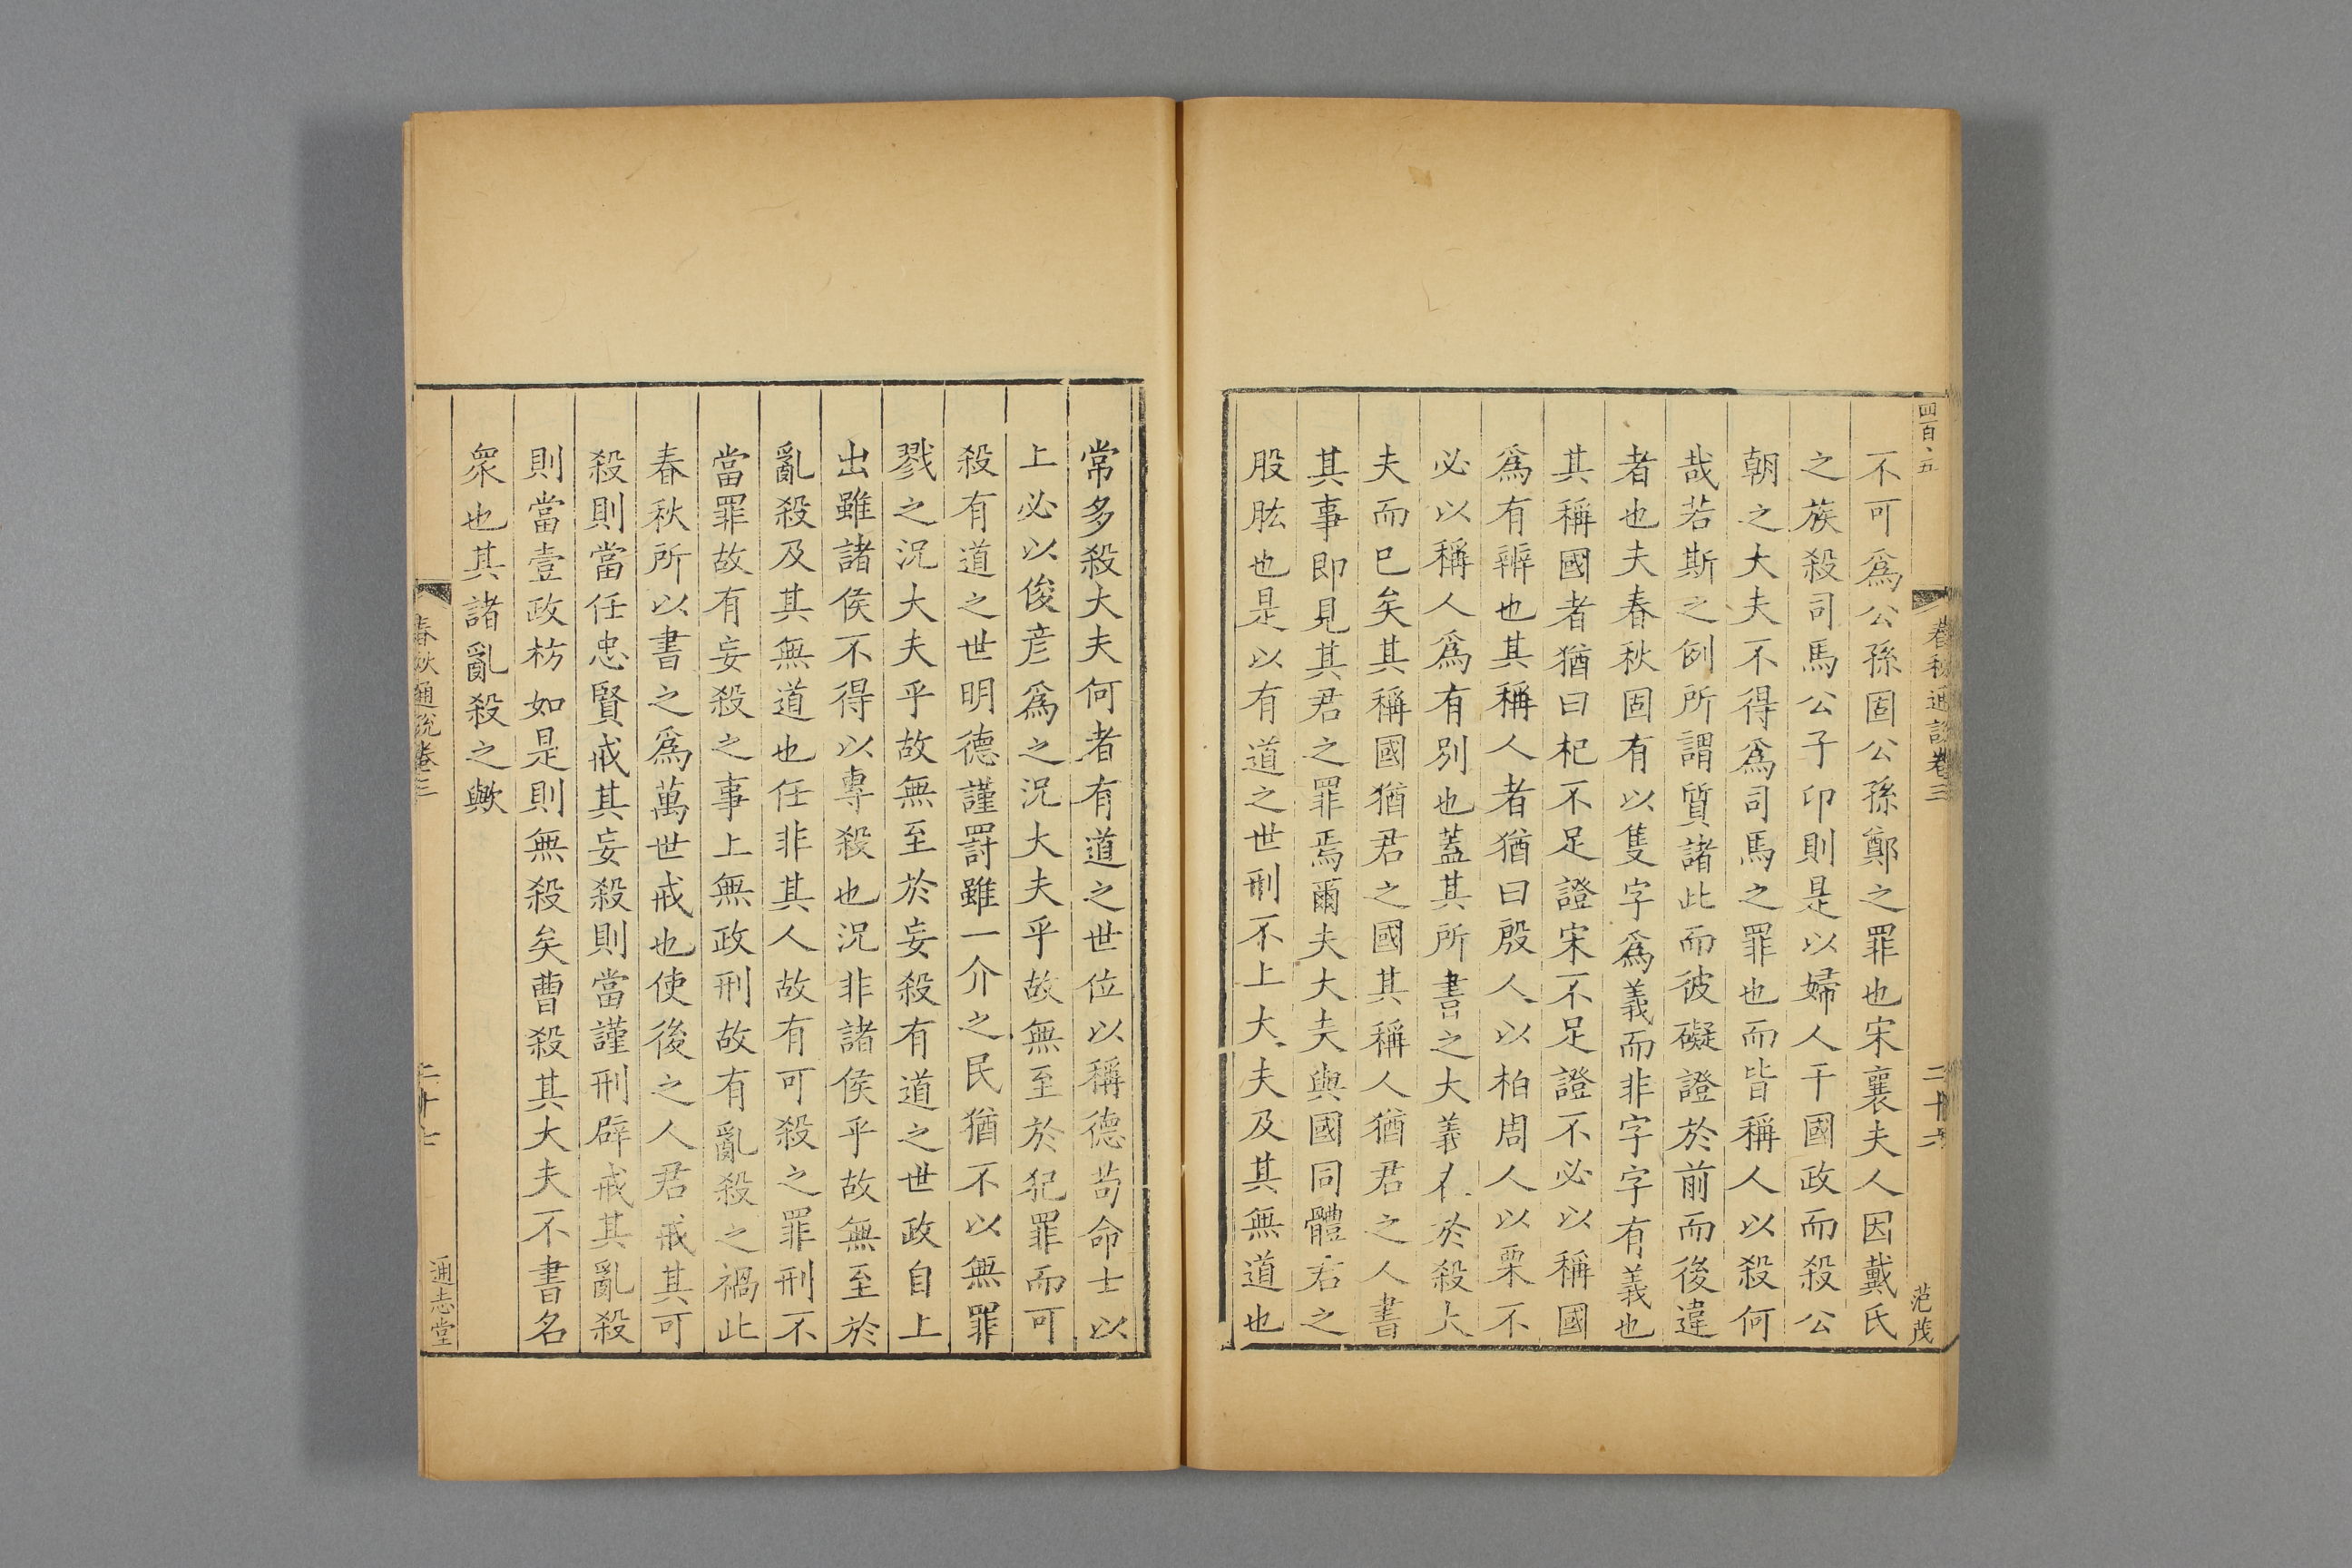 四百五
春秋通說卷三
二十六
范茂
不可爲公孫固公孫鄭之罪也宋襄夫人因戴氏
之族殺司馬公子卬則是以婦人干國政而殺公
朝之大夫不得爲司馬之罪也而皆稱人以殺何
哉若斯之例所謂質諸此而彼礙證於前而後違
者也夫春秋固有以隻字爲義而非字字有義也
其稱國者猶曰杞不足證宋不足證不必以稱國
爲有辨也其稱人者猶曰殷人以柏周人以栗不
必以稱人爲有別也蓋其所書之大義在於殺大
夫而已矣其稱國猶君之國其稱人猶君之人書
其事即見其君之罪焉爾夫大夫與國同體君之
股肱也是以有道之世刑不上大夫及其無道也
常多殺大夫何者有道之世位以稱德苟命士以
上必以俊彦爲之況大夫乎故無至於犯罪而可
殺有道之世明德謹罰雖一介之民猶不以無罪
戮之況大夫乎故無至於妄殺有道之世政自上
出雖諸侯不得以專殺也況非諸侯乎故無至於
亂殺及其無道也任非其人故有可殺之罪刑不
當罪故有妄殺之事上無政刑故有亂殺之禍此
春秋所以書之爲萬世戒也使後之人君戒其可
殺則當任忠賢戒其妄殺則當謹刑辟戒其亂殺
則當壹政枋如是則無殺矣曹殺其大夫不書名
衆也其諸亂殺之歟
春秋通說卷三
二十七
通志堂